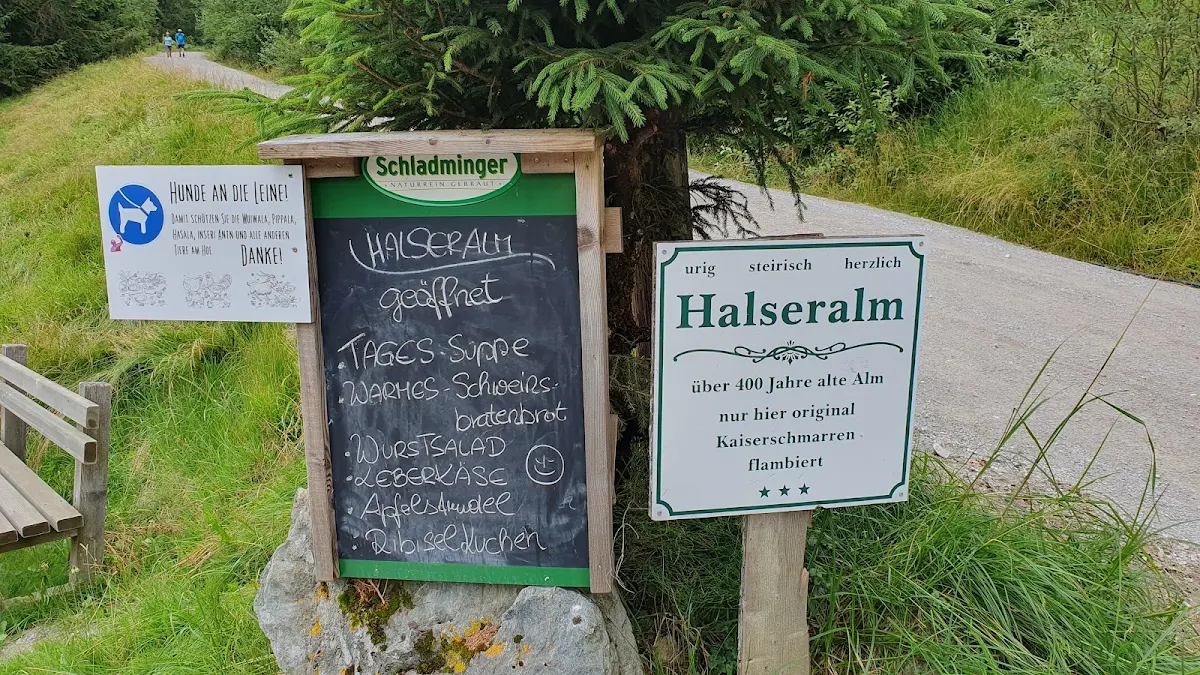 HUNDE AN DIE LEINE!
DAMIT SCHÜTZEN SIE DIE WUIWALA, PIPPALA,
HASALA, INSERI ANTN UND ALLE ANDEREN
TIERE AM HOF
DANKE!
Schladminger
NATURREIN GEBRAUT
HALSERALM
geöffnet
· TAGES-SUPPE
· WARMES-SCHWEINS-
bratenbrot
· WURSTSALAD
· LEBERKÄSE
· Apfelstrudel
· Ribiselkuchen
urig steirisch herzlich
Halseralm
über 400 Jahre alte Alm
nur hier original
Kaiserschmarren
flambiert